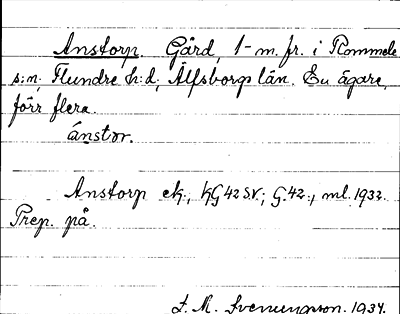 Anstorp. Gård, 1 m. fr. i Rommele
s:n, Flundre h:d, Älfsborgs län. En ägare,
förr flera.
ánstor.
Anstorp ek., KG 42 S.V.; G. 42., ml. 1933.
Prep. på.
L. M. Svenungsson. 1934.